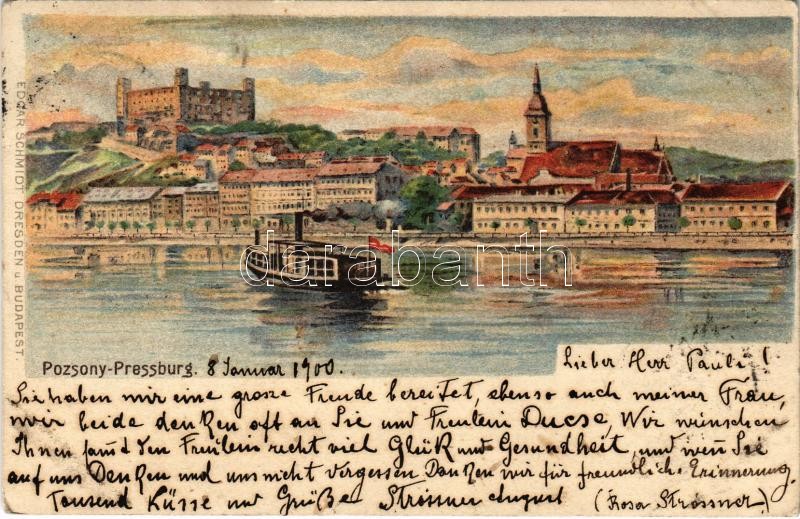 EDGAR SCHMIDT DRESDEN u. BUDAPEST.
darabanth
Pozsony-Pressburg. 8 Januar 1900.
Lieber Herr Pauli!
Sie haben mir eine grosze Freude bereitet, ebenso auch meiner Frau,
wir beide denken oft an Sie und Freulein Ducse, Wir wünschen
Ihnen samt den Freülein recht viel Glük und Gesundheit, und wen Sie
auf uns Denken und uns nicht vergessen Danken wir für freundliche Erinnerung.
Tousend Küsse und Grüße Strossner August (Rosa Strossner)